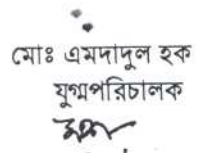 মোঃ এমদাদুল হক
যুগ্মপরিচালক